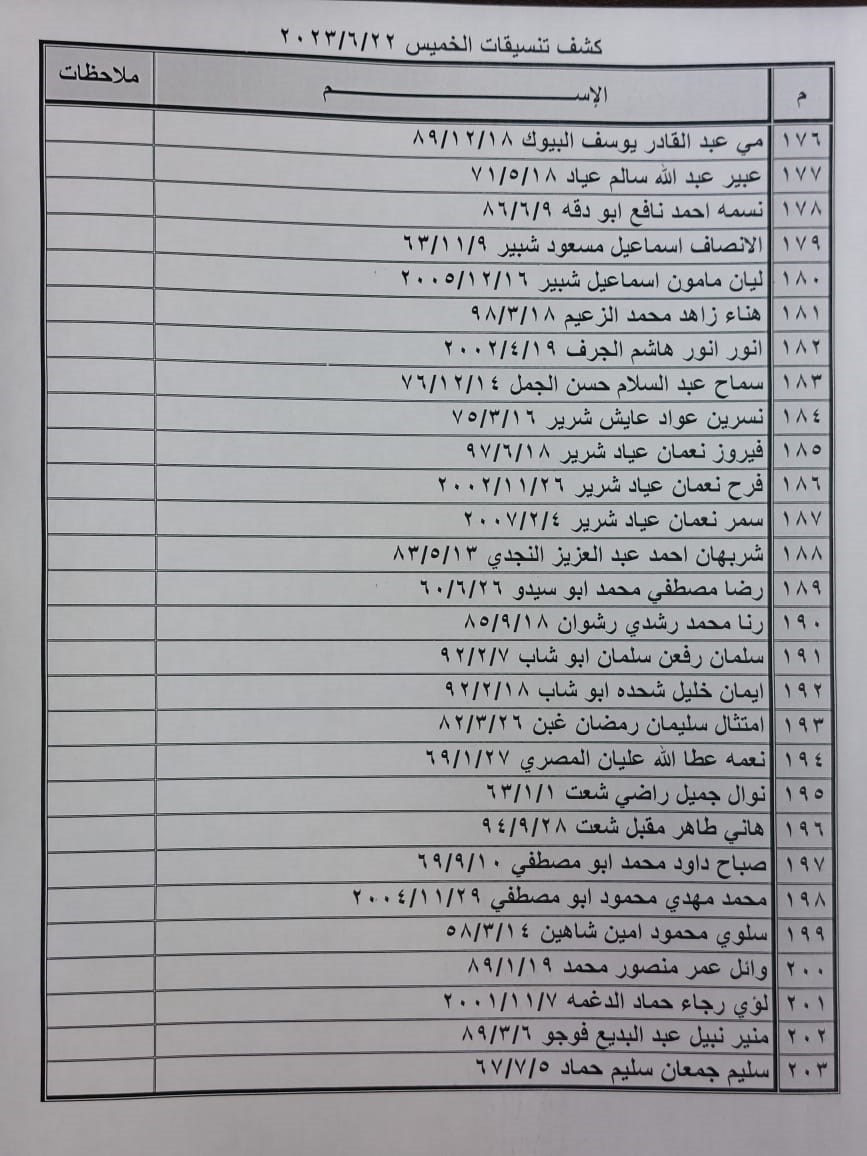 كشف تنسيقات الخميس ٢٠٢٣/٦/٢٢
م الإســـــــم ملاحظات
١٧٦ مي عبد القادر يوسف البيوك ٨٩/١٢/١٨
١٧٧ عبير عبد الله سالم عياد ٧١/٥/١٨
١٧٨ نسمه احمد نافع ابو دقه ٨٦/٦/٩
١٧٩ الانصاف اسماعيل مسعود شبير ٦٣/١١/٩
١٨٠ ليان مامون اسماعيل شبير ٢٠٠٥/١٢/١٦
١٨١ هناء زاهد محمد الزعيم ٩٨/٣/١٨
١٨٢ انور انور هاشم الجرف ٢٠٠٢/٤/١٩
١٨٣ سماح عبد السلام حسن الجمل ٧٦/١٢/١٤
١٨٤ نسرين عواد عايش شرير ٧٥/٣/١٦
١٨٥ فيروز نعمان عياد شرير ٩٧/٦/١٨
١٨٦ فرح نعمان عياد شرير ٢٠٠٢/١١/٢٦
١٨٧ سمر نعمان عياد شرير ٢٠٠٧/٢/٤
١٨٨ شريهان احمد عبد العزيز النجدي ٨٣/٥/١٣
١٨٩ رضا مصطفي محمد ابو سيدو ٦٠/٦/٢٦
١٩٠ رنا محمد رشدي رشوان ٨٥/٩/١٨
١٩١ سلمان رفعن سلمان ابو شاب ٩٢/٢/٧
١٩٢ ايمان خليل شحده ابو شاب ٩٢/٢/١٨
١٩٣ امتثال سليمان رمضان غبن ٨٢/٣/٢٦
١٩٤ نعمه عطا الله عليان المصري ٦٩/١/٢٧
١٩٥ نوال جميل راضي شعت ٦٣/١/١
١٩٦ هاني طاهر مقبل شعت ٩٤/٩/٢٨
١٩٧ صباح داود محمد ابو مصطفي ٦٩/٩/١٠
١٩٨ محمد مهدي محمود ابو مصطفي ٢٠٠٤/١١/٢٩
١٩٩ سلوي محمود امين شاهين ٥٨/٣/١٤
٢٠٠ وائل عمر منصور محمد ٨٩/١/١٩
٢٠١ لؤي رجاء حماد الدغمه ٢٠٠١/١١/٧
٢٠٢ منير نبيل عبد البديع فوجو ٨٩/٣/٦
٢٠٣ سليم جمعان سليم حماد ٦٧/٧/٥